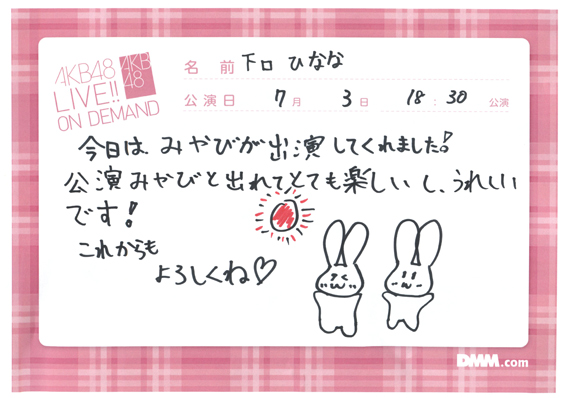 AKB48
LIVE!!
ON DEMAND
AKB
48
名 前 下口 ひなな
公演日 7月 3日 18:30 公演
今日は、みやびが出演してくれました!
公演みやびと出れてとても楽しいし、うれしい
です!
これからも
よろしくね♡
DMM.com